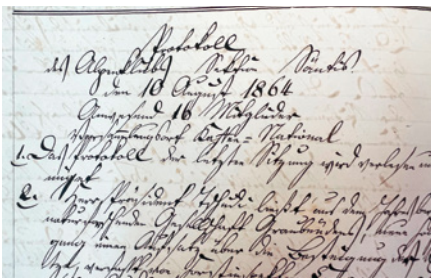 Protokoll
des Alpenklubs Sektion Säntis.
den 10 August 1864
Anwesend 16 Mitglieder
Versammlungsort Kaffee=National
1. Das Protokoll der letzten Sitzung wird verlesen
2. Herr Präsident Tschudi liest aus dem
naturforschenden Gesellschaft Graubündens,
einen Aufsatz über die Besteigung
verfaßt von